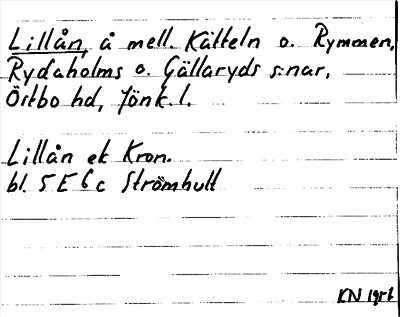 Lillån, å mell. Kätteln o. Rymmen,
Rydaholms o. Gällaryds s:nar,
Östbo hd, Jönk. l.
Lillån ek Kron.
bl. 5 E 6 c Strömhult
KN